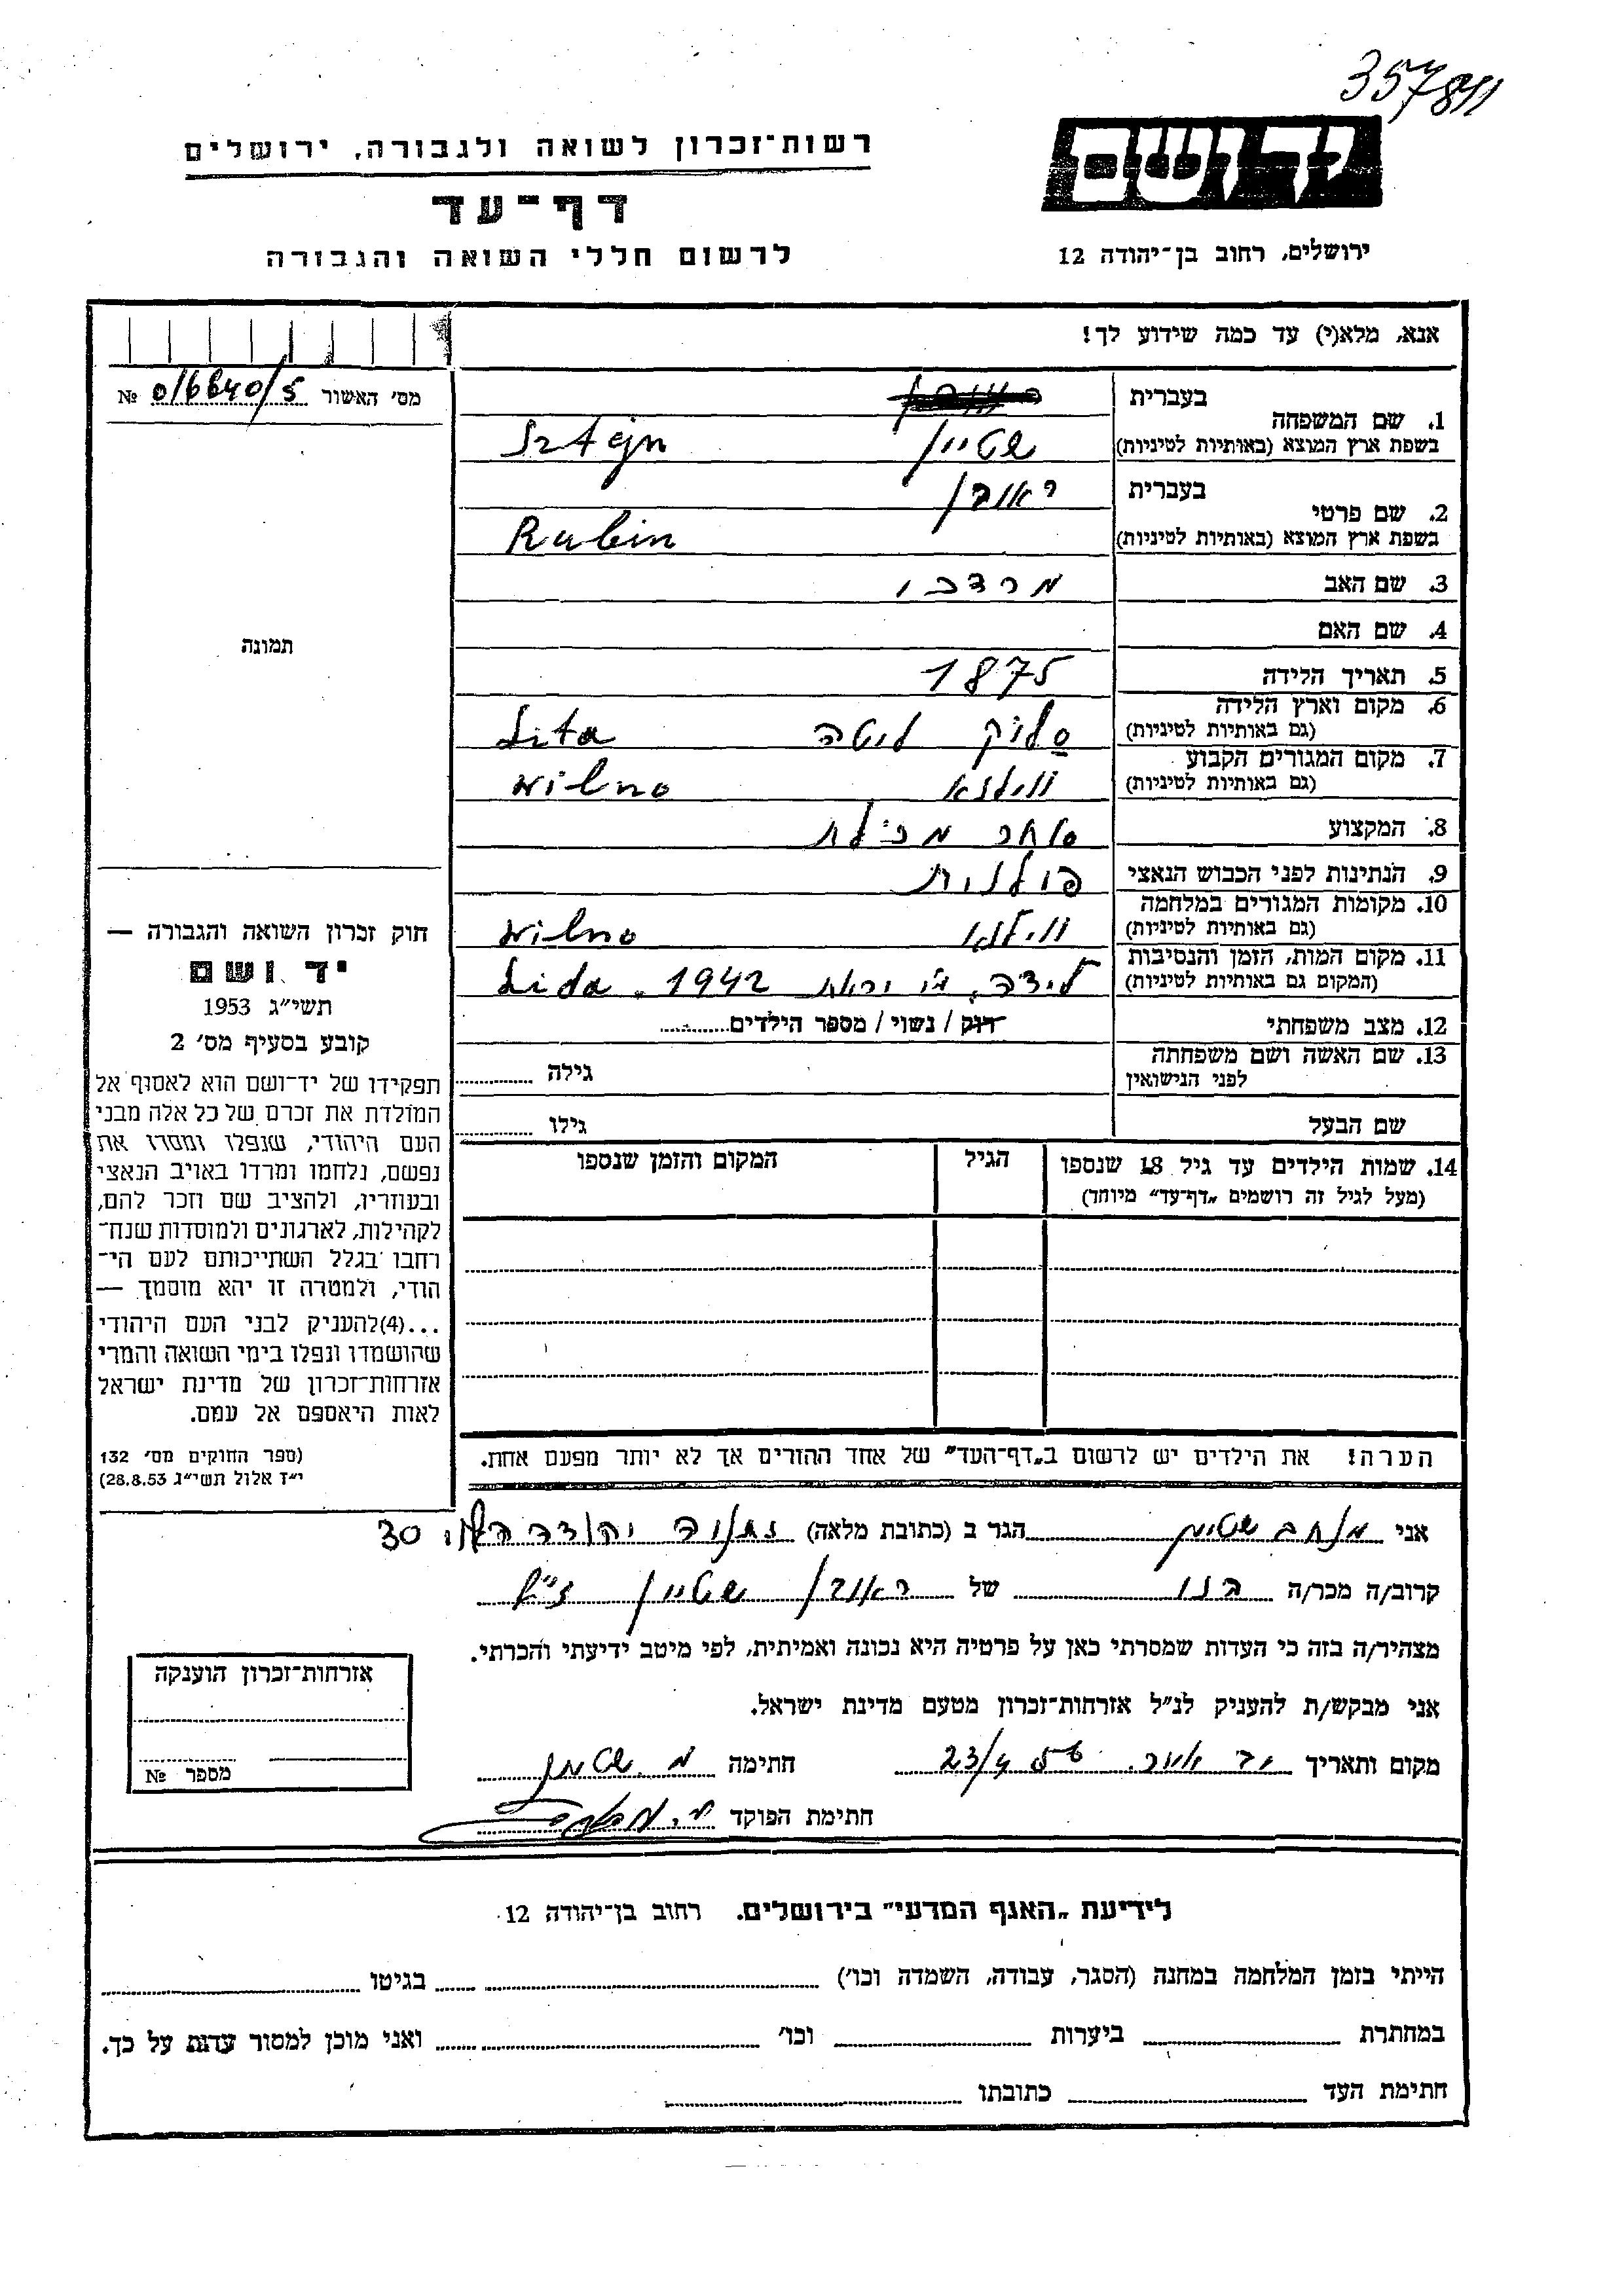 357811
יד ושם
רשות־זכרון לשואה ולגבורה, ירושלים
דף־עד
לרשום חללי השואה והגבורה
ירושלים, רחוב בן־יהודה 12
אנא, מלא(י) עד כמה שידוע לך!
מס׳ האשור № 016640/5
תמונה
חוק זכרון השואה והגבורה —
יד ושם
תשי״ג 1953
קובע בסעיף מס׳ 2
תפקידו של יד־ושם הוא לאסוף אל
המולדת את זכרם של כל אלה מבני
העם היהודי, שנפלו ומסרו את
נפשם, נלחמו ומרדו באויב הנאצי
ובעוזריו, ולהציב שם וזכר להם,
לקהילות, לארגונים ולמוסדות שנח־
רבו בגלל השתייכותם לעם הי־
הודי, ולמטרה זו יהא מוסמך —
...(4)להעניק לבני העם היהודי
שהושמדו ונפלו בימי השואה והמרי
אזרחות־זכרון של מדינת ישראל
לאות היאספם אל עמם.
(ספר החוקים מס׳ 132
י״ז אלול תשי״ג 28.8.53)
בעברית
1. שם המשפחה
בשפת ארץ המוצא (באותיות לטיניות) שטיין Sztejn
בעברית ראובן
2. שם פרטי
בשפת ארץ המוצא (באותיות לטיניות) Rubin
3. שם האב מרדכי
4. שם האם
5. תאריך הלידה 1875
6. מקום וארץ הלידה
(גם באותיות לטיניות) ליטה Lita
7. מקום המגורים הקבוע
(גם באותיות לטיניות) ווילנא Wilno
8. המקצוע סוחר
9. הנתינות לפני הכבוש הנאצי פולנית
10. מקומות המגורים במלחמה
(גם באותיות לטיניות) ווילנא Wilno
11. מקום המות, הזמן והנסיבות
(המקום גם באותיות לטיניות) לידה, 1942 Lida
12. מצב משפחתי רוק / נשוי / מספר הילדים
13. שם האשה ושם משפחתה
לפני הנישואין גילה
שם הבעל גילו
14. שמות הילדים עד גיל 18 שנספו הגיל המקום והזמן שנספו
(מעל לגיל זה רושמים „דף־עד״ מיוחד)
הערה! את הילדים יש לרשום ב„דף־העד״ של אחד ההורים אך לא יותר מפעם אחת.
אני שטיין הגר ב (כתובת מלאה) יהודה הלוי 30
קרוב/ה מכר/ה בנו של ראובן שטיין ז״ל
מצהיר/ה בזה כי העדות שמסרתי כאן על פרטיה היא נכונה ואמיתית, לפי מיטב ידיעתי והכרתי.
אני מבקש/ת להעניק לנ״ל אזרחות־זכרון מטעם מדינת ישראל.
מקום ותאריך 23/4 חתימה
חתימת הפוקד
אזרחות־זכרון הוענקה
מספר №
לידיעת „האגף המדעי״ בירושלים. רחוב בן־יהודה 12
הייתי בזמן המלחמה במחנה (הסגר, עבודה, השמדה וכו׳) בגיטו
במחתרת ביערות וכו׳ ואני מוכן למסור עדות על כך.
חתימת העד כתובתו